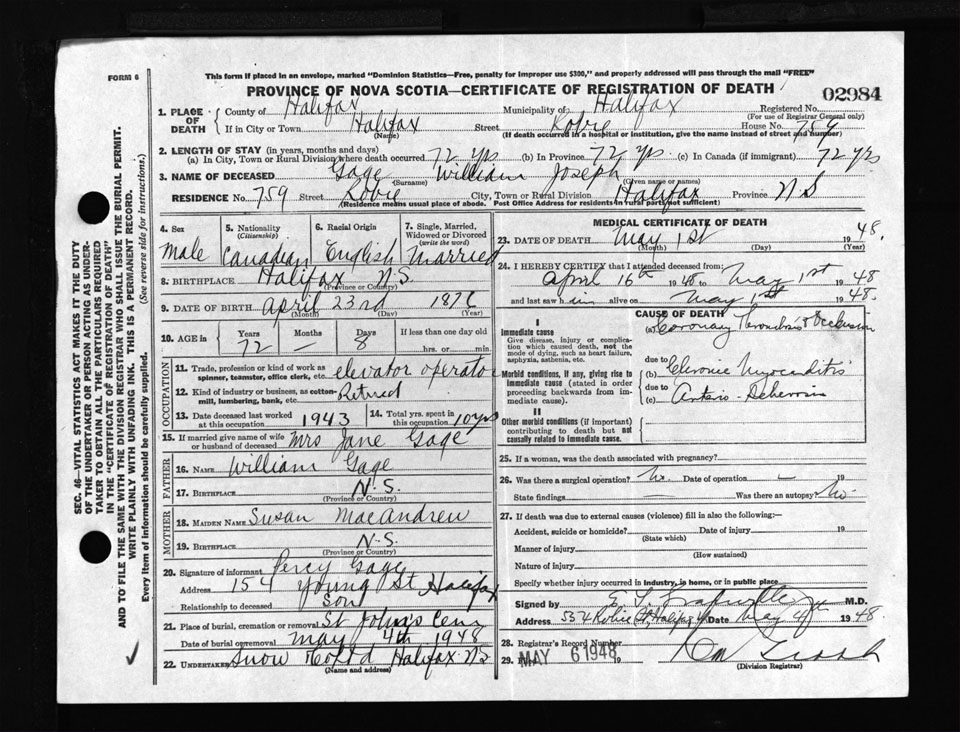 FORM 6
This form if placed in an envelope, marked "Dominion Statistics—Free, penalty for improper use $300," and properly addressed will pass through the mail "FREE"
PROVINCE OF NOVA SCOTIA—CERTIFICATE OF REGISTRATION OF DEATH
02984
1. PLACE OF DEATH County of Halifax Municipality of Halifax Registered No.
(For use of Registrar General only)
If in City or Town Halifax Street Robie House No. 759
(Name) (If death occurred in a hospital or institution, give the name instead of street and number)
2. LENGTH OF STAY (in years, months and days)
(a) In City, Town or Rural Division where death occurred 72 yrs (b) In Province 72 yrs. (c) In Canada (if immigrant) 72 yrs
3. NAME OF DECEASED Gage William Joseph
(Surname) (Given name or names)
RESIDENCE No. 759 Street Robie City, Town or Rural Division Halifax Province N S
(Residence means usual place of abode. Post Office Address for residents in rural parts not sufficient)
4. Sex Male
5. Nationality (Citizenship) Canadian
6. Racial Origin English
7. Single, Married, Widowed or Divorced (write the word) Married
8. BIRTHPLACE Halifax N.S.
(Province or Country)
9. DATE OF BIRTH April 23rd 1876
(Month) (Day) (Year)
10. AGE in Years Months Days If less than one day old
72 — 8 hrs. or min.
OCCUPATION
11. Trade, profession or kind of work as spinner, teamster, office clerk, etc. elevator operator
12. Kind of industry or business, as cotton-mill, lumbering, bank, etc. Retired
13. Date deceased last worked at this occupation 1943
14. Total yrs. spent in this occupation 10 yrs
15. If married give name of wife or husband of deceased Mrs Jane Gage
FATHER
16. NAME William Gage
17. BIRTHPLACE N.S.
(Province or Country)
MOTHER
18. MAIDEN NAME Susan MacAndrew
19. BIRTHPLACE N.S.
(Province or Country)
20. Signature of informant Percy Gage
Address 154 Young St. Halifax
Relationship to deceased Son
21. Place of burial, cremation or removal St John's Cem
Date of burial or removal May 4th 1948
22. Undertaker Snow Halifax N.S
(Name and address)
MEDICAL CERTIFICATE OF DEATH
23. DATE OF DEATH May 1st 1948.
(Month) (Day) (Year)
24. I HEREBY CERTIFY that I attended deceased from:
April 16th 1948 to May 1st 1948
and last saw him alive on May 1st 1948.
CAUSE OF DEATH
I
Immediate cause
Give disease, injury or complication which caused death, not the mode of dying, such as heart failure, asphyxia, asthenia, etc.
(a) Coronary Thrombosis Occlusion
due to
Morbid conditions, if any, giving rise to immediate cause (stated in order proceeding backwards from immediate cause).
(b) Chronic Myocarditis
due to
(c) Arterio-Sclerosis
II
Other morbid conditions (if important) contributing to death but not causally related to immediate cause.
25. If a woman, was the death associated with pregnancy?
26. Was there a surgical operation? No. Date of operation — 19
State findings Was there an autopsy? No.
27. If death was due to external causes (violence) fill in also the following:—
Accident, suicide or homicide? Date of injury 19
(State which)
Manner of injury
(How sustained)
Nature of injury
Specify whether injury occurred in industry, in home, or in public place
Signed by M.D.
Address Robie St, Halifax Date May 1948
28. Registrar's Record Number
29. MAY 6 1948 19
(Division Registrar)
SEC. 46—VITAL STATISTICS ACT MAKES IT THE DUTY
OF THE UNDERTAKER OR PERSON ACTING AS UNDER-
TAKER TO OBTAIN ALL THE PARTICULARS REQUIRED
IN THE "CERTIFICATE OF REGISTRATION OF DEATH"
AND TO FILE THE SAME WITH THE DIVISION REGISTRAR WHO SHALL ISSUE THE BURIAL PERMIT.
WRITE PLAINLY WITH UNFADING INK. THIS IS A PERMANENT RECORD.
Every item of information should be carefully supplied. (See reverse side for instructions.)